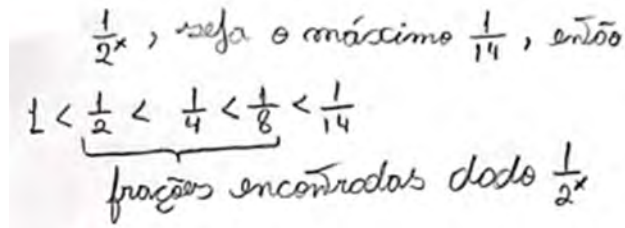 1/2ˣ, seja o máximo 1/14, então
1 < 1/2 < 1/4 < 1/8 < 1/14
frações encontradas dado 1/2ˣ